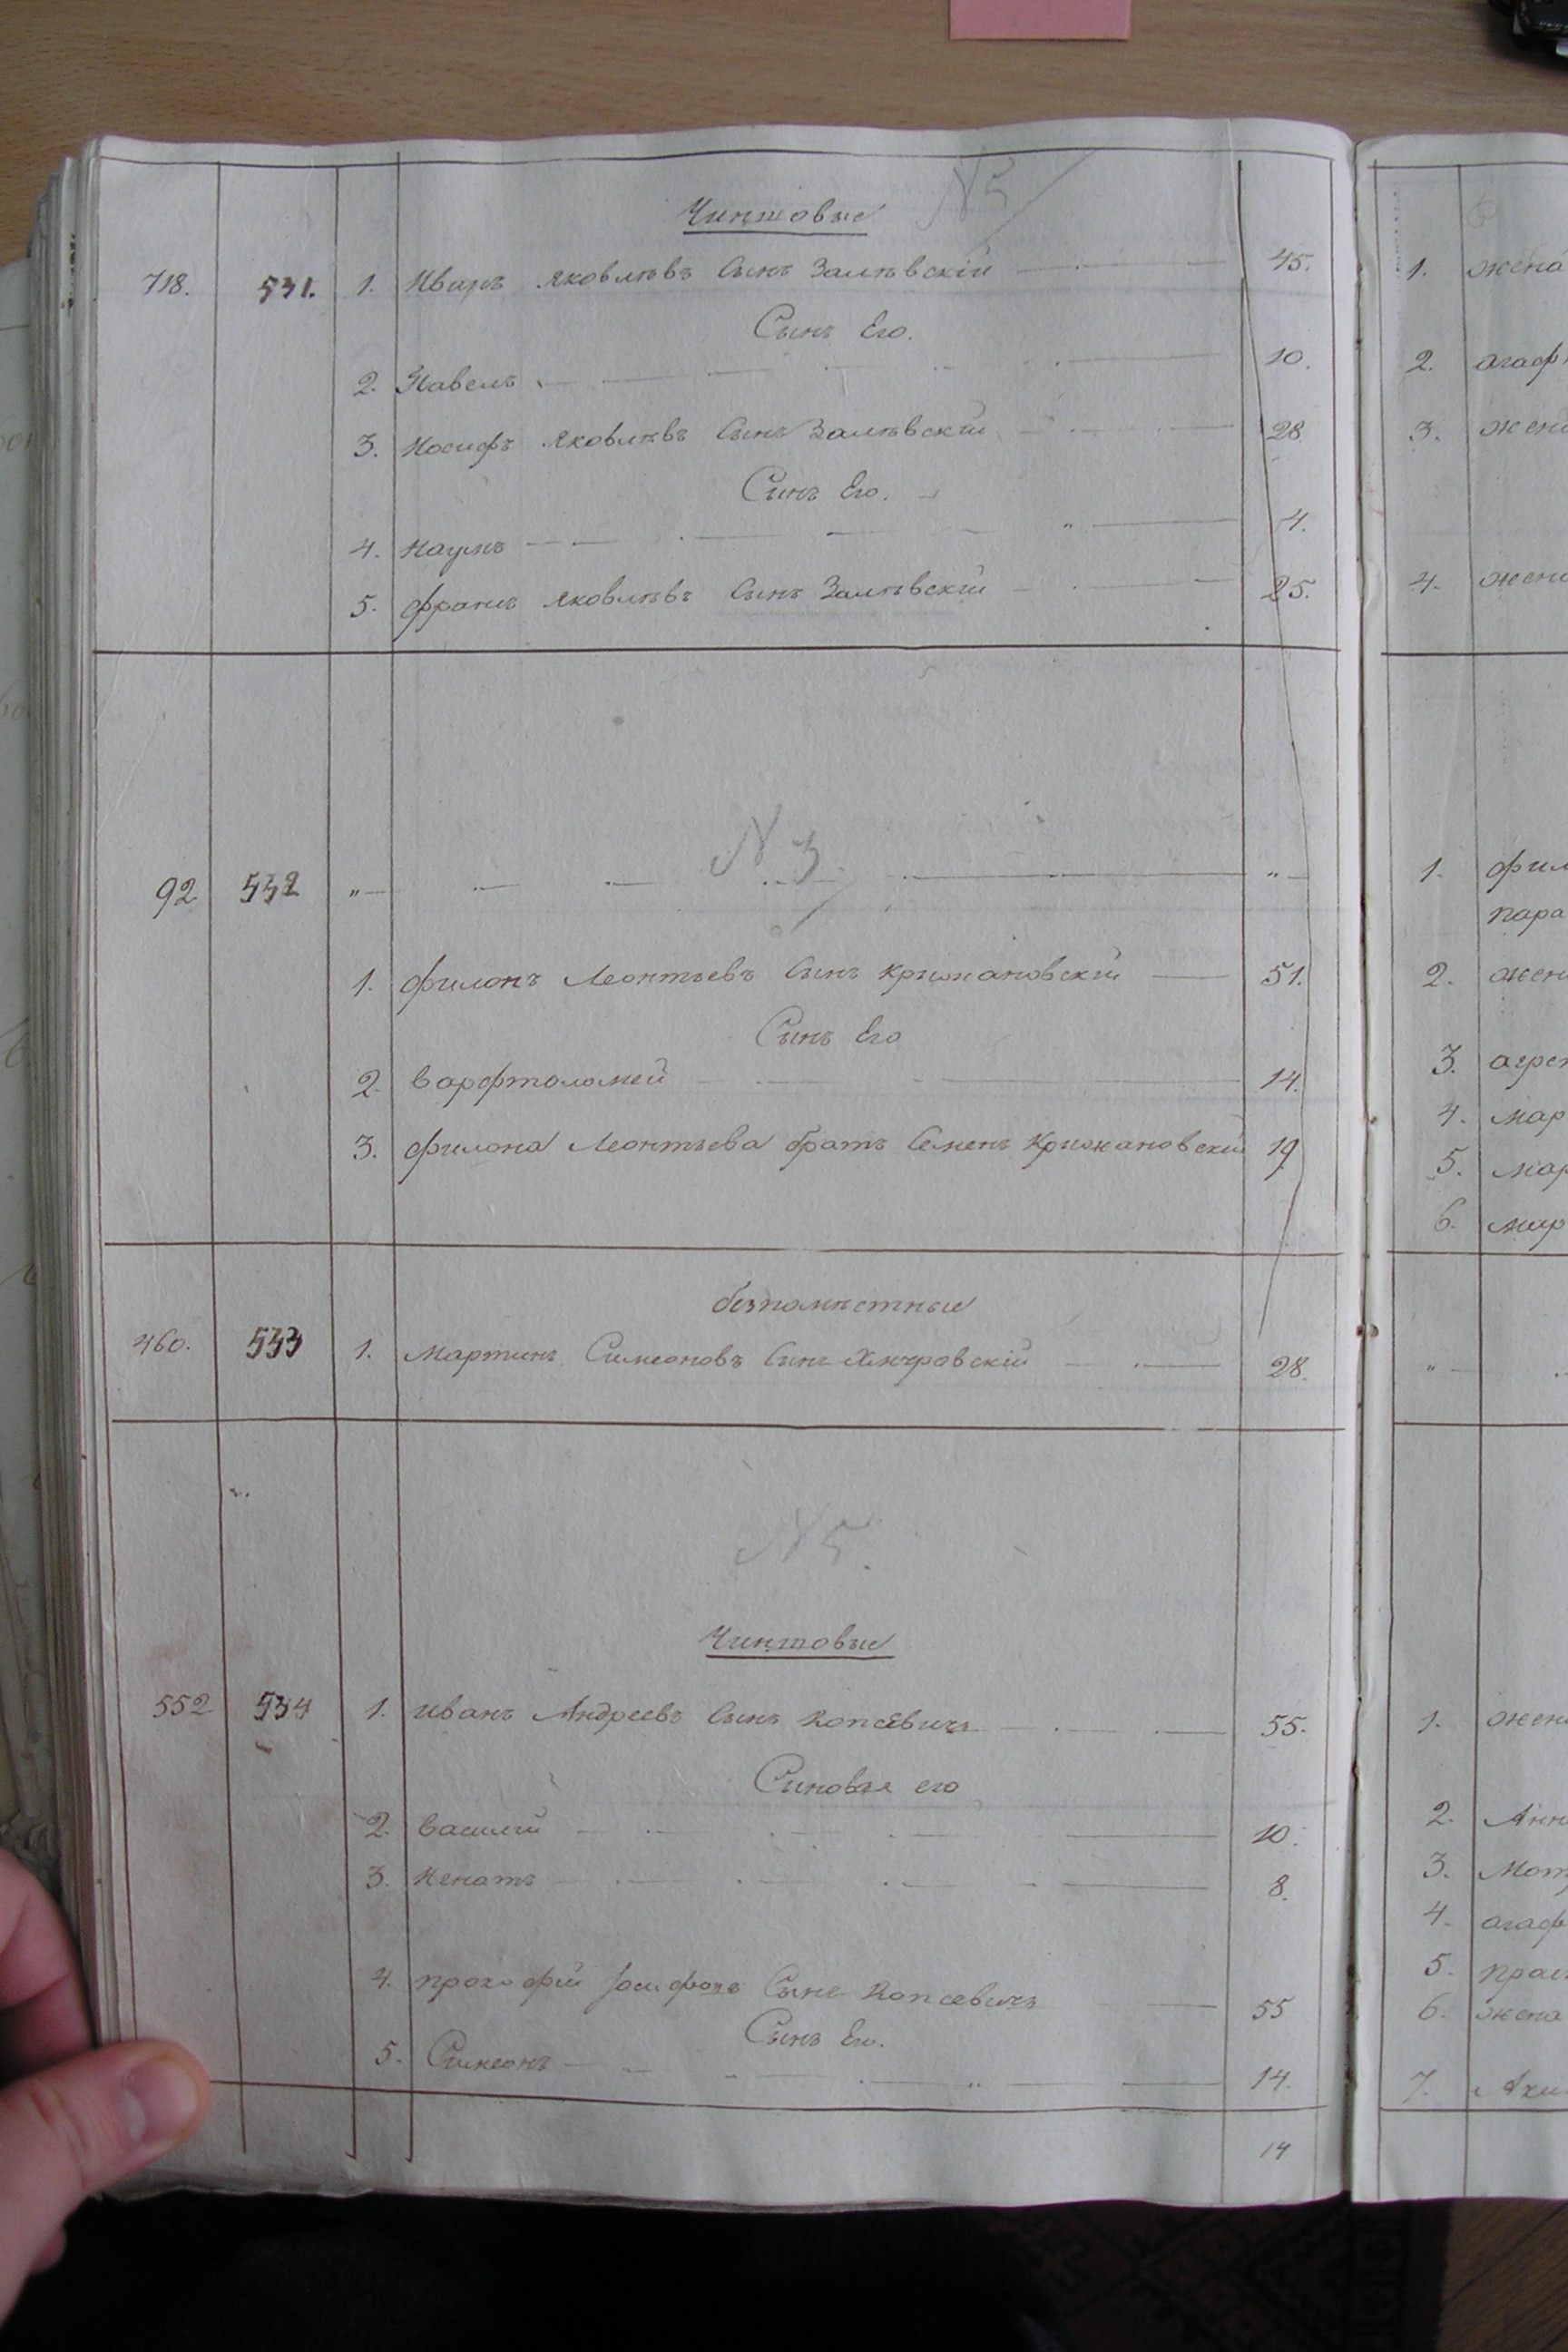 Чиншовые N5
718. 531. 1. Иванъ Яковлѣвъ Сынъ Залѣвскій 45.
Сынъ Его.
2. Павелъ 10.
3. Иосифъ Яковлѣвъ Сынъ Залѣвскій 28.
Сынъ Его.
4. Наумъ 4.
5. Францъ Яковлѣвъ Сынъ Залѣвскій 25.
N 3
92. 532 " "
1. Филонъ Леонтьевъ Сынъ Крижановскій 51.
Сынъ Его
2. Варфтоломей 14.
3. Филона Леонтьева братъ Семенъ Крижановскій 19
безпомѣстные
460. 533 1. Мартинъ Симеоновъ Сынъ 28.
N5.
Чиншовые
552. 534 1. Иванъ Андреевъ Сынъ Копсевичъ 55.
Синовья его
2. Василий 10.
3. 8.
4. Прокофий Іосифовъ Сынъ Копсевичъ 55
Сынъ Его.
5. Симеонъ 14.
14
1. жена
2. агаф
3. жен
4. жен
1. фил
пара
2. жен
3. агре
4. мар
5. мар
6. мар
"
1. жен
2. Анн
3. Мот
4. агаф
5.
6. жена
7.